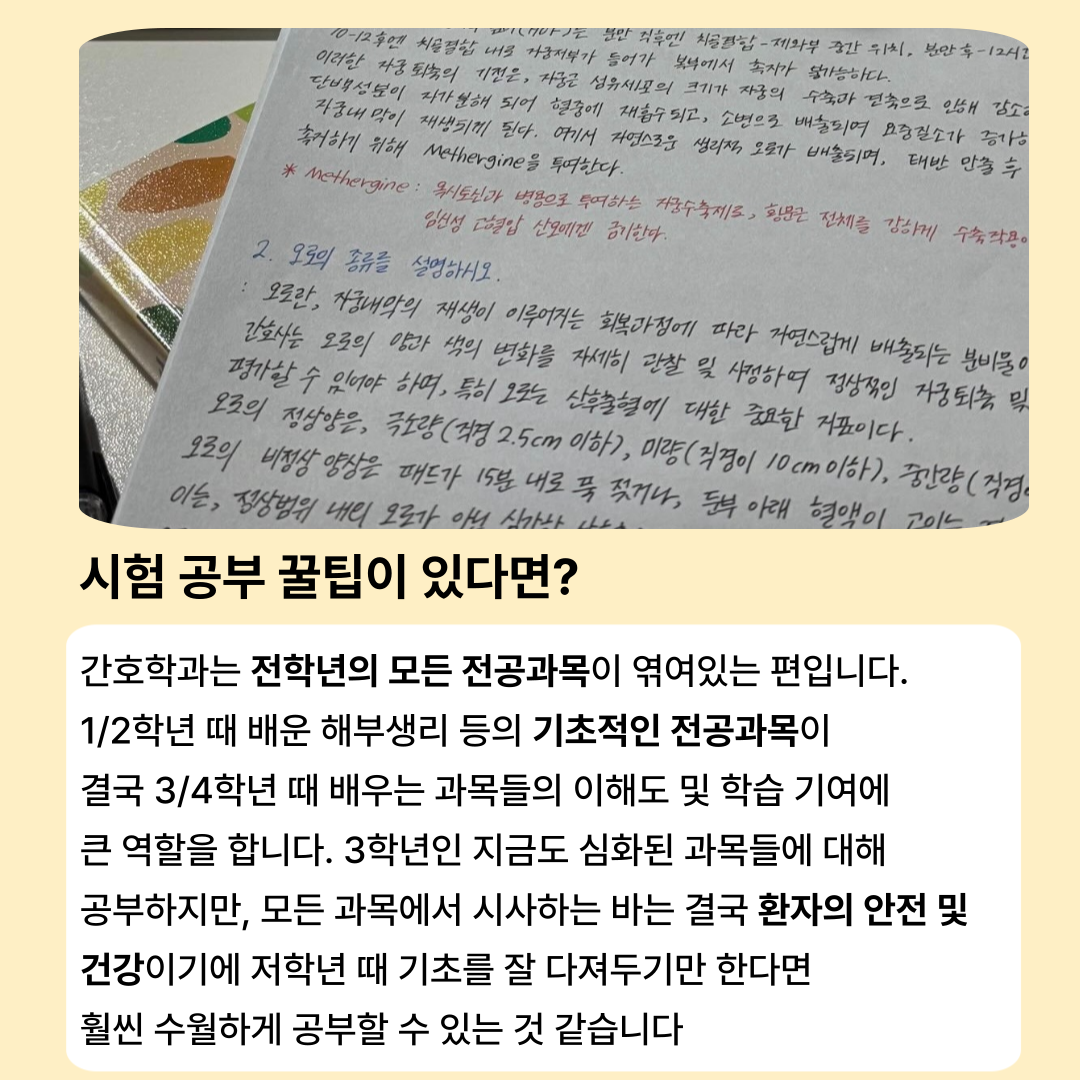 10-12후엔 치골결합 내로 자궁저부가 들어가 복부에서 촉지가 불가능하다.
이러한 자궁퇴축의 기전은, 자궁근 섬유세포의 크기가 자궁의 수축과 견축으로 인해 감소
단백성분이 자가분해 되어 혈중에 재흡수되고, 소변으로 배출되며 요중질소가 증가
자궁내막이 재생되게 된다. 여기서 자연스로운 생리적 오로가 배출되며, 태반 만출 후
촉거하기 위해 Methergine을 투여한다.
* Methergine : 옥시토신과 병용으로 투여하는 자궁수축제로, 전체를 강하게 수축작용
임신성 고혈압 산모에겐 금기한다.
2. 오로의 종류를 설명하시오.
: 오로란, 자궁내막의 재생이 이루어지는 회복과정에 따라 자연스럽게 배출되는 분비물이
간호사는 오로의 양과 색의 변화를 자세히 관찰 및 사정하여 정상적인 자궁퇴축 및
평가할 수 있어야 하며, 특히 오로는 산후출혈에 대한 중요한 지표이다.
오로의 정상양은, 극소량(직경 2.5cm 이하), 미량(직경이 10cm이하), 중간량(직경
오로의 비정상 양상은 패드가 15분 내로 푹 젖거나, 둔부 아래 혈액이 고이는
이는, 정상범위 내의 오로가 아닌 심각한
시험 공부 꿀팁이 있다면?
간호학과는 전학년의 모든 전공과목이 엮여있는 편입니다.
1/2학년 때 배운 해부생리 등의 기초적인 전공과목이
결국 3/4학년 때 배우는 과목들의 이해도 및 학습 기여에
큰 역할을 합니다. 3학년인 지금도 심화된 과목들에 대해
공부하지만, 모든 과목에서 시사하는 바는 결국 환자의 안전 및
건강이기에 저학년 때 기초를 잘 다져두기만 한다면
훨씬 수월하게 공부할 수 있는 것 같습니다